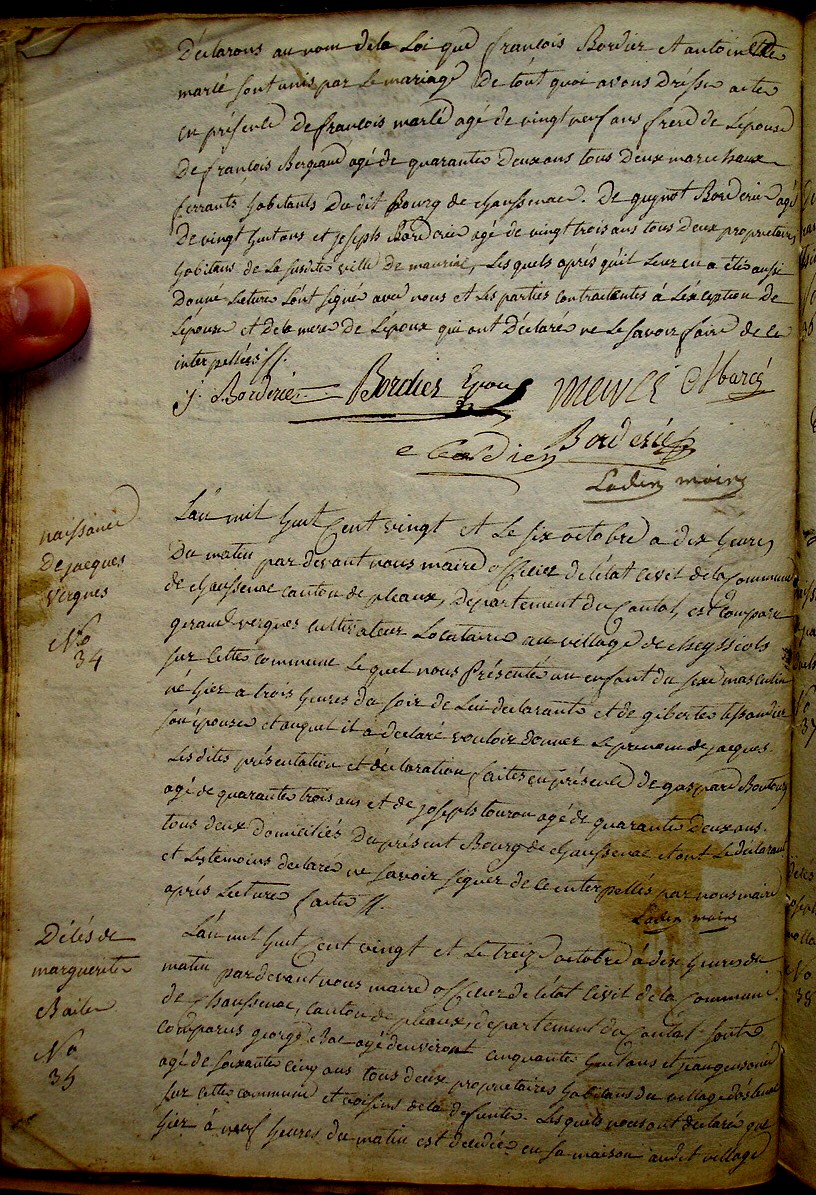 Déclarons au nom de la Loi que francois Bordier et antoinette
marlé sont unis par le mariage De tout quoi avons Dréssé acte
en présence De francois marlé agé de vingt neuf ans frere de L'épouse
De francois Bergeaud agé de quarante Deux ans tous Deux marechaux
ferrants habitants Du dit Bourg de chaussenac. De guynot Borderie agé
De vingt huit ans et joseph Borderie agé de vingt trois ans tous Deux proprietaires
habitans de La susdite ville de mauriac, Les quels aprés qu'il Leur en a été aussi
Donné Lecture L'ont signé avec nous et Les parties contractantes à L'exception de
L'épouse et de la mere De L'époux qui ont Déclaré ne Le savoir faire de ce
interpellées //.
J. Borderie Bordier Epoux
Borderie
Lader maire
naissance
De jacques
Vergnes
No
34
L'an mil huit Cent vingt et Le six octobre a dix heures
Du matin par devant nous maire officier de l'état civil de la Commune
de chaussenac canton de pleaux, Departement du Cantal, est Comparu
geraud vergnes cultivateur Locataire au village de cheyssiols
sur Cette commune Le quel nous Présenté un enfant du sexe masculin
né hier a trois heures du soir de Lui declarant et de giberte tessandier
son épouse et auquel il a declaré vouloir donner Le prenom de jacques.
Les dites présentation et déclaration faites en présence de gaspard Boutouy
agé de quarante trois ans et de joseph touron agé de quarante Deux ans.
tous deux Domiciliés Du présent Bourg de chaussenac et ont Le déclarant
et Les temoins declaré ne savoir signer de ce interpellés par nous maire
aprés Lecture faite //.
Lader maire
Délés de
marguerite
Baile
No
35
L'an mil huit Cent vingt et Le treize octobre à dix heures du
matin par devant nous maire officier de l'état Civil de la Commune
de chaussenac, canton de pleaux, departement du Cantal sont
comparus george Bac agé denviront cinquante huit ans et
agé de soixante cinq ans tous deux proprietaires habitans du village
sur cette commune et voisins de la defunte. Les quels nous ont déclaré que
hier à neuf heures du matin est décédée en sa maison audit village